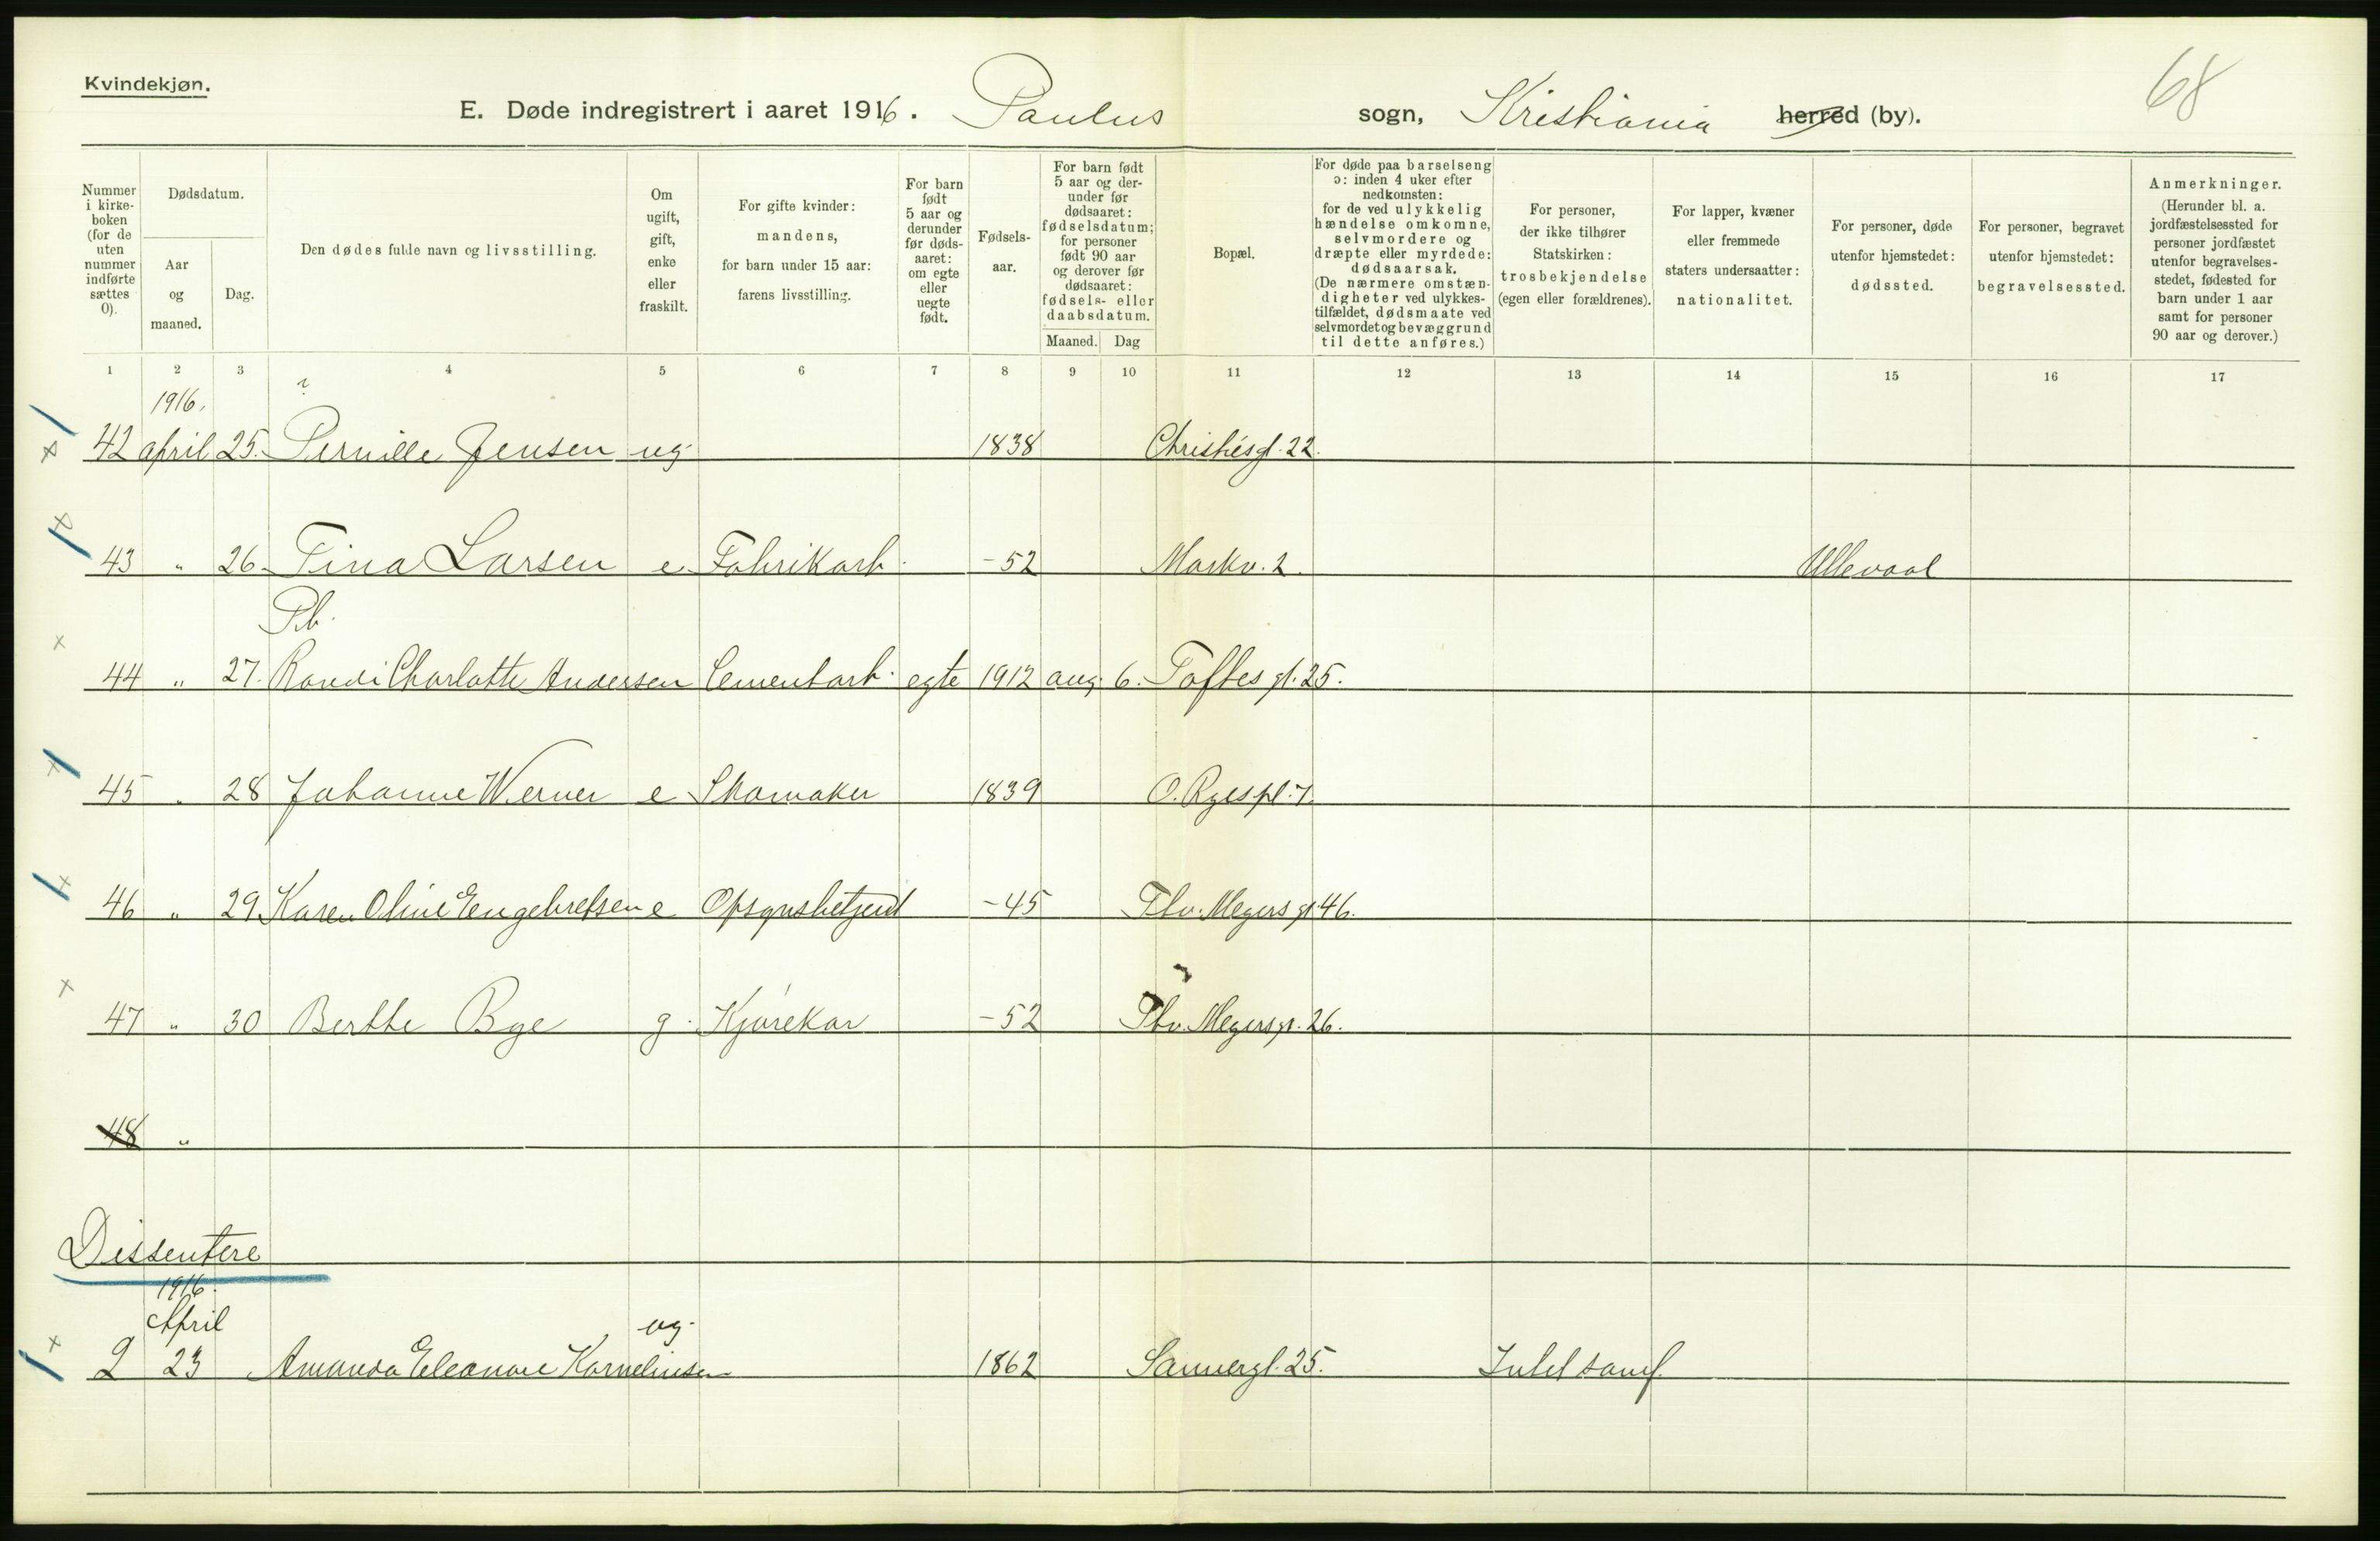 Kvindekjøn.
68
E. Døde indregistrert i aaret 1916. Paulus sogn, Kristiania herred (by).
Nummer i kirke-boken (for de uten nummer indførte sættes 0).
Dødsdatum.
Aar og maaned.
Dag.
Den dødes fulde navn og livsstilling.
Om ugift, gift, enke eller fraskilt.
For gifte kvinder: mandens, for barn under 15 aar: farens livsstilling.
For barn født 5 aar og derunder før døds-aaret: om egte eller uegte født.
Fødsels-aar.
For barn født 5 aar og der-under før dødsaaret: fødselsdatum; for personer født 90 aar og derover før dødsaaret: fødsels- eller daabsdatum.
Maaned. Dag
Bopæl.
For døde paa barselseng ɔ: inden 4 uker efter nedkomsten: for de ved ulykkelig hændelse omkomne, selvmordere og dræpte eller myrdede: dødsaarsak. (De nærmere omstæn-digheter ved ulykkes-tilfældet, dødsmaate ved selvmordet og bevæggrund til dette anføres.)
For personer, der ikke tilhører Statskirken: trosbekjendelse (egen eller forældrenes).
For lapper, kvæner eller fremmede staters undersaatter: nationalitet.
For personer, døde utenfor hjemstedet: dødssted.
For personer, begravet utenfor hjemstedet: begravelsessted.
Anmerkninger. (Herunder bl. a. jordfæstelsessted for personer jordfæstet utenfor begravelses-stedet, fødested for barn under 1 aar samt for personer 90 aar og derover.)
1 2 3 4 5 6 7 8 9 10 11 12 13 14 15 16 17
1916.
42 april 25. Pernille Jensen ug. 1838 Christiesgt. 22.
43 " 26 Tina Larsen e. Fabrikarb. -52 Markv. 2. Ullevaal
Pb.
44 " 27. Randi Charlotte Andersen Cementarb. egte 1912 aug. 6. Toftes gt. 25.
45 " 28 Johanne Werner e Skomaker 1839 O. Ryes pl. 7.
46 " 29 Karen Oline Engebretsen e Opsynsbetjent -45 Thv. Meyers gt. 46.
47 " 30 Berthe Bye g. Kjørekar -52 Thv. Meyersgt. 26.
48 "
Dissentere
1916.
April ug.
2 23 Amanda Eleonore Kornelinsen 1862 Sannergt. 25.